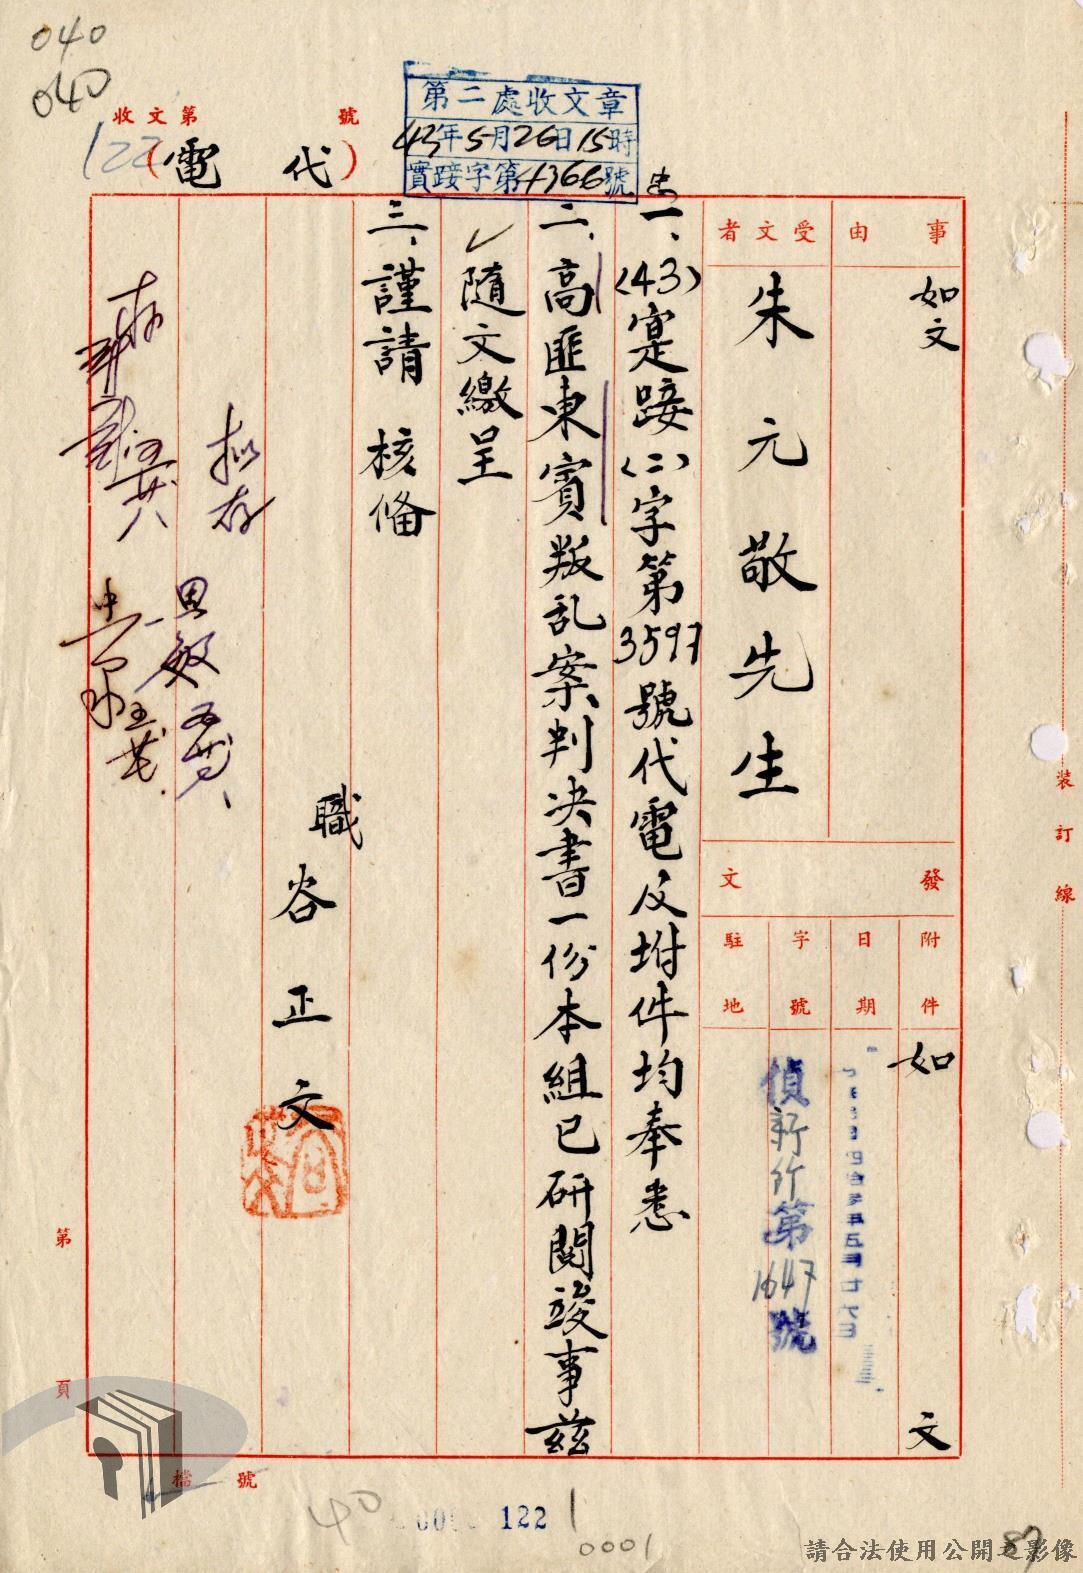 040
040
收文第 號
122
(代電)
第二處收文章
43年5月26日15時
實踐字第4366號
事由
如文
受文者
朱元敬先生
發文
附件
如文
日期
字號
偵新竹第1647號
駐地
一、(43)寔踐(二)字第3597號代電及坿件均奉悉
二、高匪東賓叛乱案判决書一份本組已研閱竣事茲
隨文繳呈
三、謹請 核備
職 谷正文
拟存
思敏
裝訂線
第 頁
檔號
40
122
0001
請合法使用公開之影像